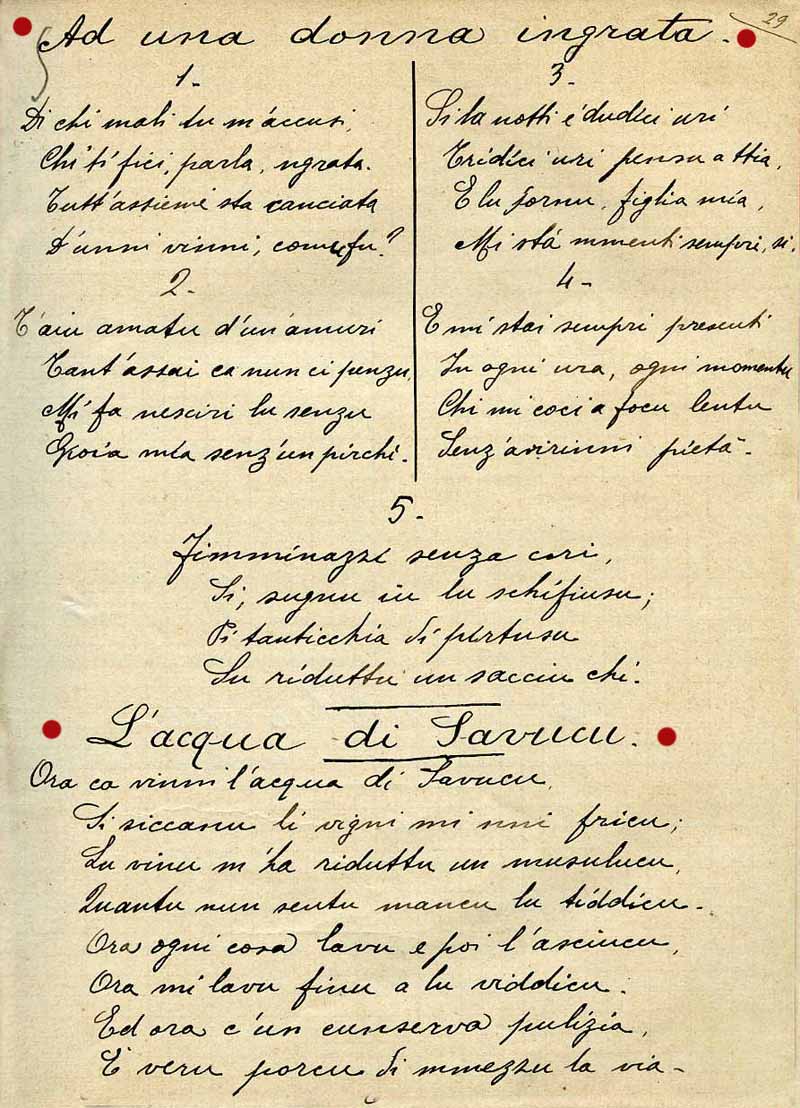 29
Ad una donna ingrata.
1-
Di chi mali tu m'accusi,
Chi ti fici, parla, ngrata.
Tutt'assiemi sta canciata
D'unni vinni, comu fu?
2-
T'aiu amatu d'un'amuri
Tant'assai ca nun ci penzu,
Mi fa nesciri lu senzu
Gioia mia senz'un pirchì.
3-
Si la notti è dudici uri
Tridici uri pensu a ttia,
E lu jornu, figlia mia,
Mi stà mmenti sempri, si.
4-
E mi stai sempri presenti
In ogni ura, ogni momentu
Chi mi coci a focu lentu
Senz'avirinni pietà-.
5-
Fimminazzi senza cori,
Si, sugnu iu lu schifiusu;
Pi tanticchia di pirtusu
Su riduttu un sacciu chi.
L'acqua di Savucu.
Ora ca vinni l'acqua di Savucu,
Si siccanu li vigni mi nni fricu;
Lu vinu m'ha riduttu un musulucu,
Quantu nun sentu mancu lu tiddicu-.
Ora ogni cosa lavu e poi l'asciucu,
Ora mi lavu finu a lu viddicu.
Ed ora c'un cunserva pulizia,
È veru porcu di mmezzu la via-